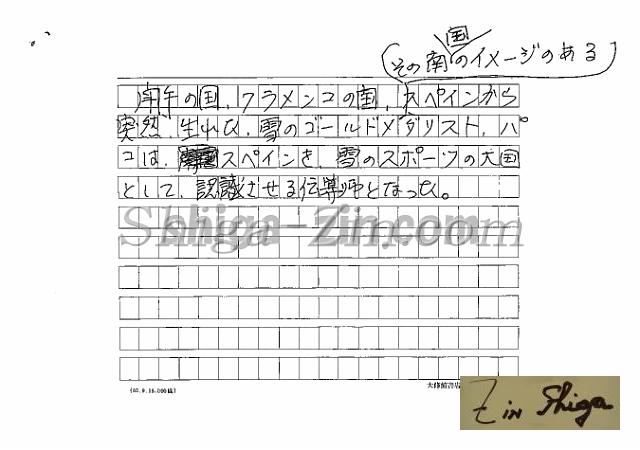 その南国のイメージのある
闘牛の国,フラメンコの国,スペインから
突然,生れた,雪のゴールドメダリスト,パ
コは,スペインを,雪のスポーツの大国
として,認識させる伝導師となった。
Shiga-Zin.com
(60.9.10,000組)
大修館書店
Z in Shiga